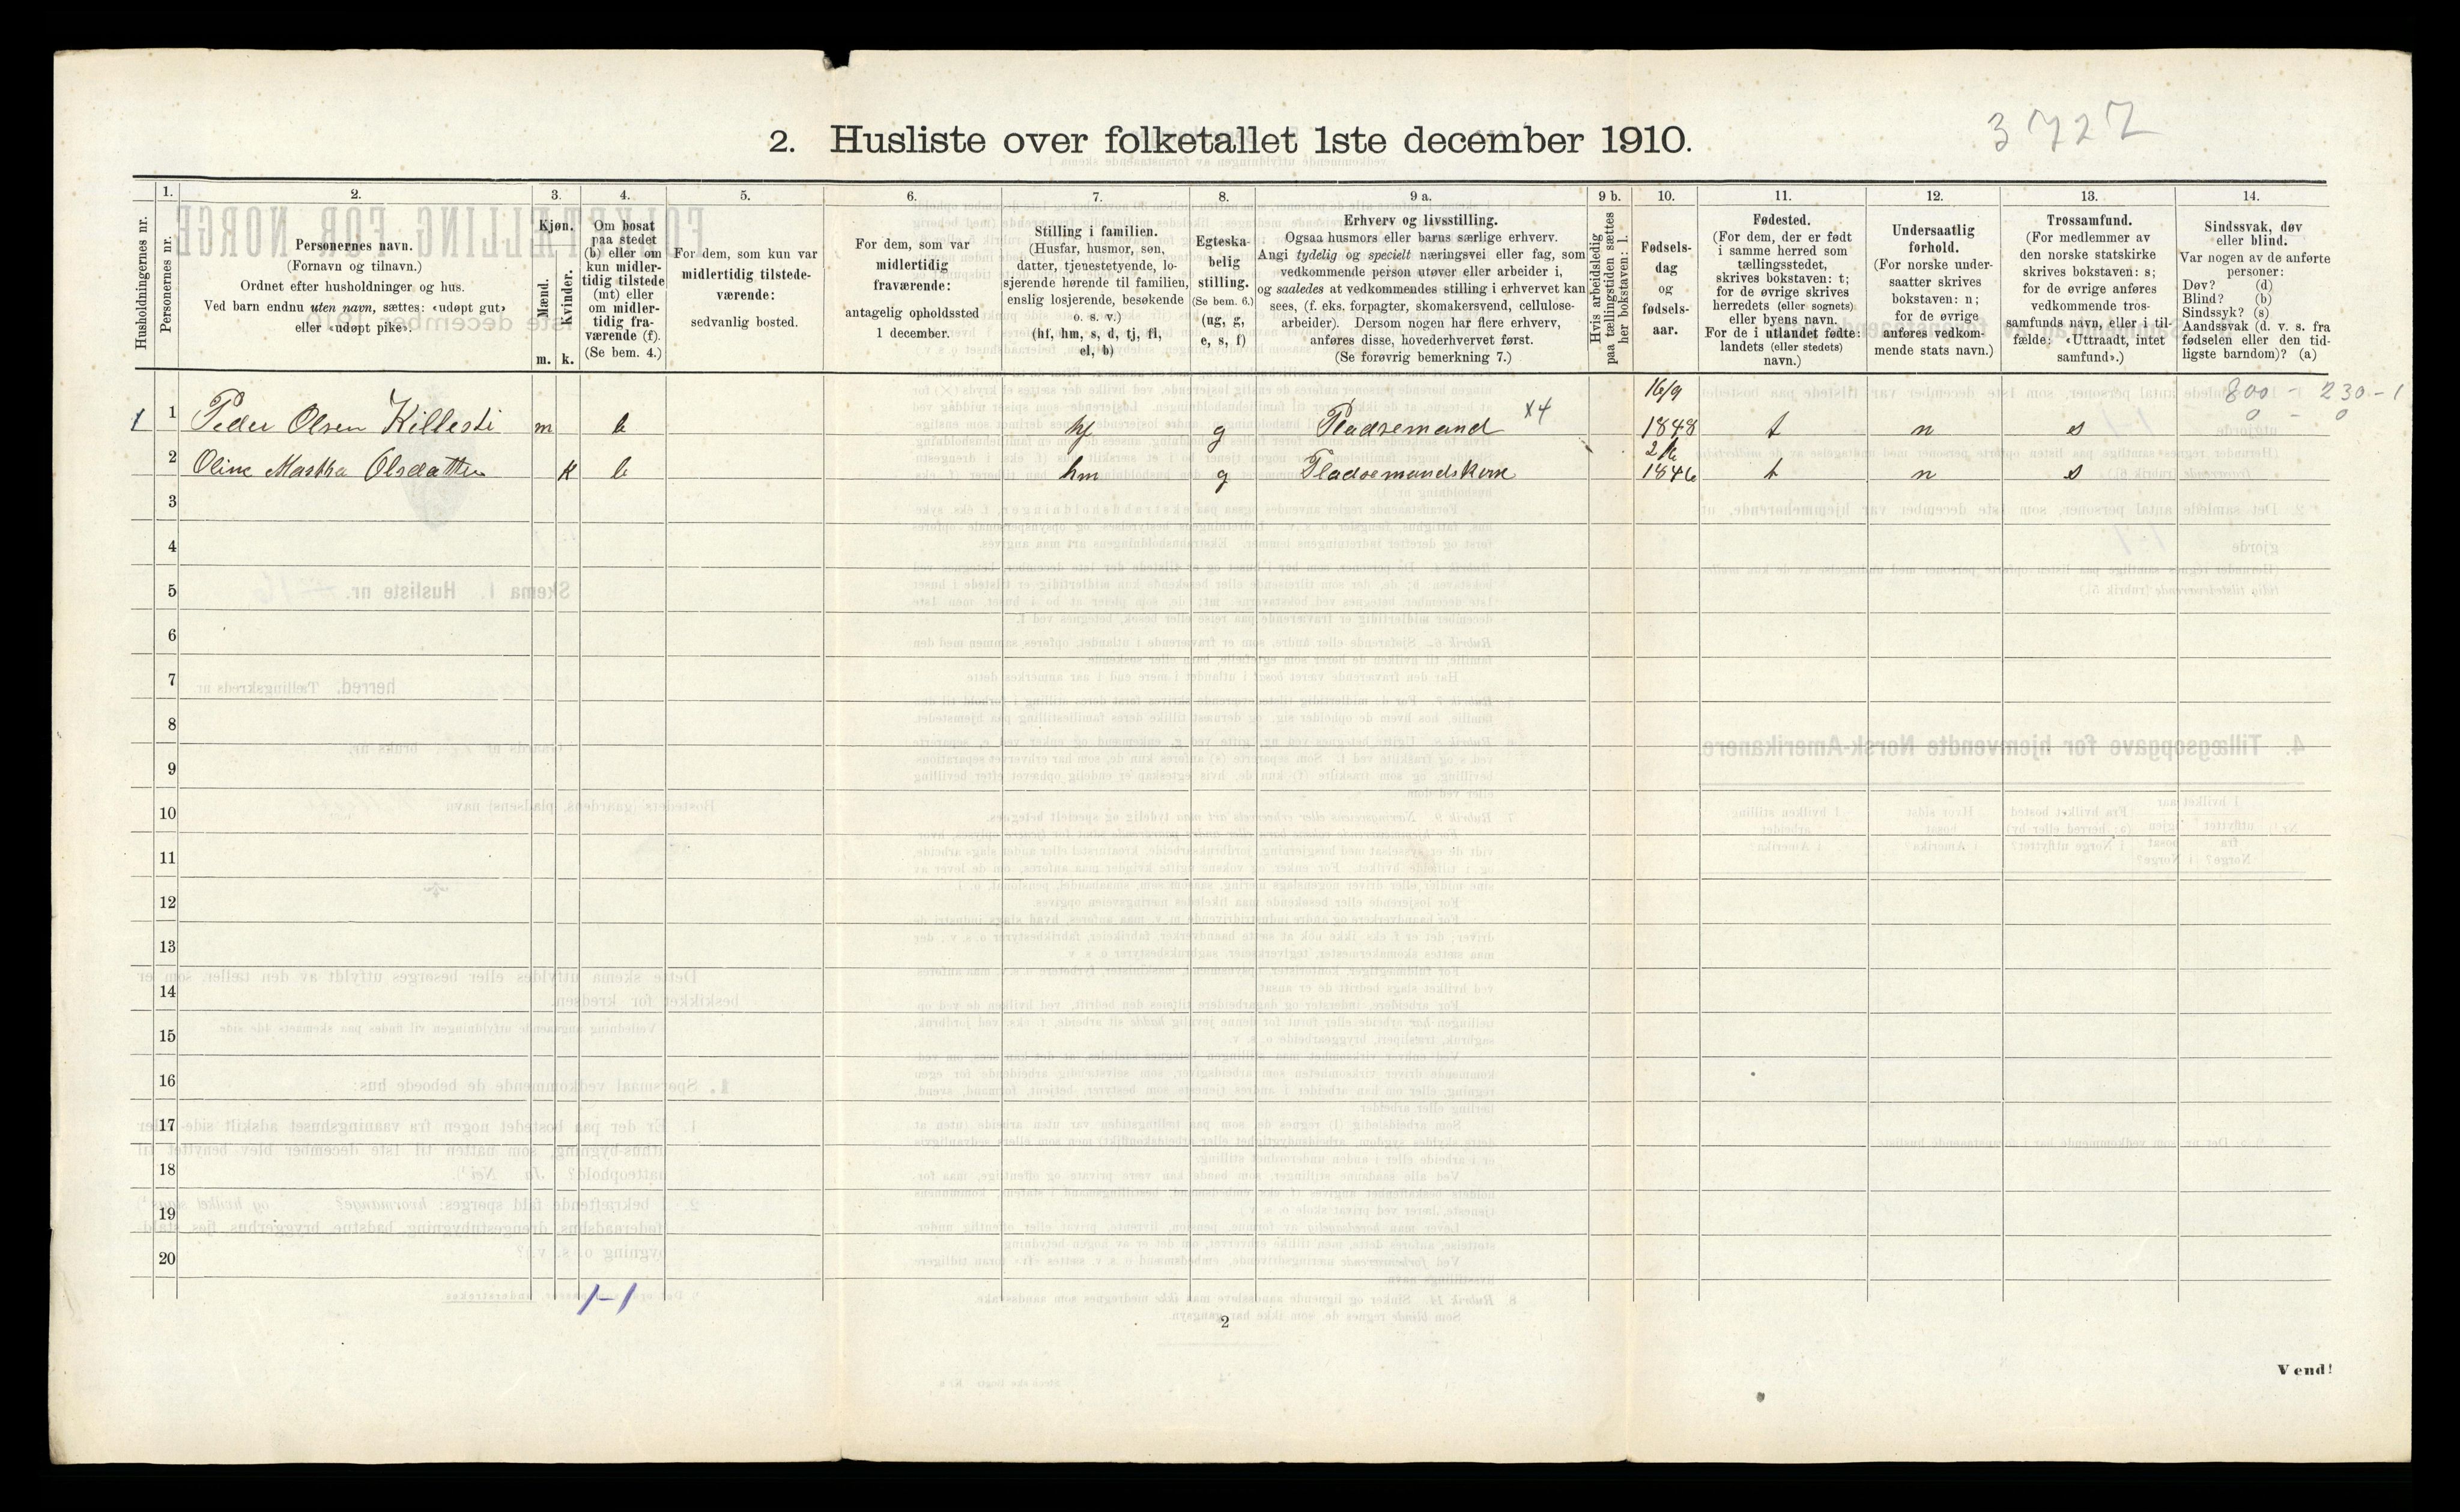 3727
2. Husliste over folketallet 1ste december 1910.
Husholdningernes nr.
1.
Personernes nr.
2.
Personernes navn.
(Fornavn og tilnavn.)
Ordnet efter husholdninger og hus.
Ved barn endnu uten navn, sættes: «udøpt gut»
eller «udøpt pike».
3.
Kjøn.
Mænd.
Kvinder.
m. k.
4.
Om bosat
paa stedet
(b) eller om
kun midler-
tidig tilstede
(mt) eller
om midler-
tidig fra-
værende (f).
(Se bem. 4.)
5.
For dem, som kun var
midlertidig tilstede-
værende:
sedvanlig bosted.
6.
For dem, som var
midlertidig
fraværende:
antagelig opholdssted
1 december.
7.
Stilling i familien.
(Husfar, husmor, søn,
datter, tjenestetyende, lo-
sjerende hørende til familien,
enslig losjerende, besøkende
o. s. v.)
(hf, hm, s, d, tj, fl,
el, b)
8.
Egteska-
belig
stilling.
(Se bem. 6.)
(ug, g,
e, s, f)
9 a.
Erhverv og livsstilling.
Ogsaa husmors eller barns særlige erhverv.
Angi tydelig og specielt næringsvei eller fag, som
vedkommende person utøver eller arbeider i,
og saaledes at vedkommendes stilling i erhvervet kan
sees, (f. eks. forpagter, skomakersvend, cellulose-
arbeider). Dersom nogen har flere erhverv,
anføres disse, hovederhvervet først.
(Se forøvrig bemerkning 7.)
9 b.
Hvis arbeidsledig
paa tællingstiden sættes
her bokstaven: l.
10.
Fødsels-
dag
og
fødsels-
aar.
11.
Fødested.
(For dem, der er født
i samme herred som
tællingsstedet,
skrives bokstaven: t;
for de øvrige skrives
herredets (eller sognets)
eller byens navn.
For de i utlandet fødte:
landets (eller stedets)
navn.)
12.
Undersaatlig
forhold.
(For norske under-
saatter skrives
bokstaven: n;
for de øvrige
anføres vedkom-
mende stats navn.)
13.
Trossamfund.
(For medlemmer av
den norske statskirke
skrives bokstaven: s;
for de øvrige anføres
vedkommende tros-
samfunds navn, eller i til-
fælde: «Uttraadt, intet
samfund».)
14.
Sindssvak, døv
eller blind.
Var nogen av de anførte
personer:
Døv? (d)
Blind? (b)
Sindssyk? (s)
Aandssvak (d. v. s. fra
fødselen eller den tid-
ligste barndom)? (a)
800 - 230 - 1
0 - 0
1 1 Peder Olsen Killesti m b hf g Pladsemand x4 16/9 1848 t n s
2 Oline Martha Olsdatter k b hm g Pladsemandskone 1846 t n s
3
4
5
6
7
8
9
10
11
12
13
14
15
16
17
18
19
20
1-1
2
Vend!